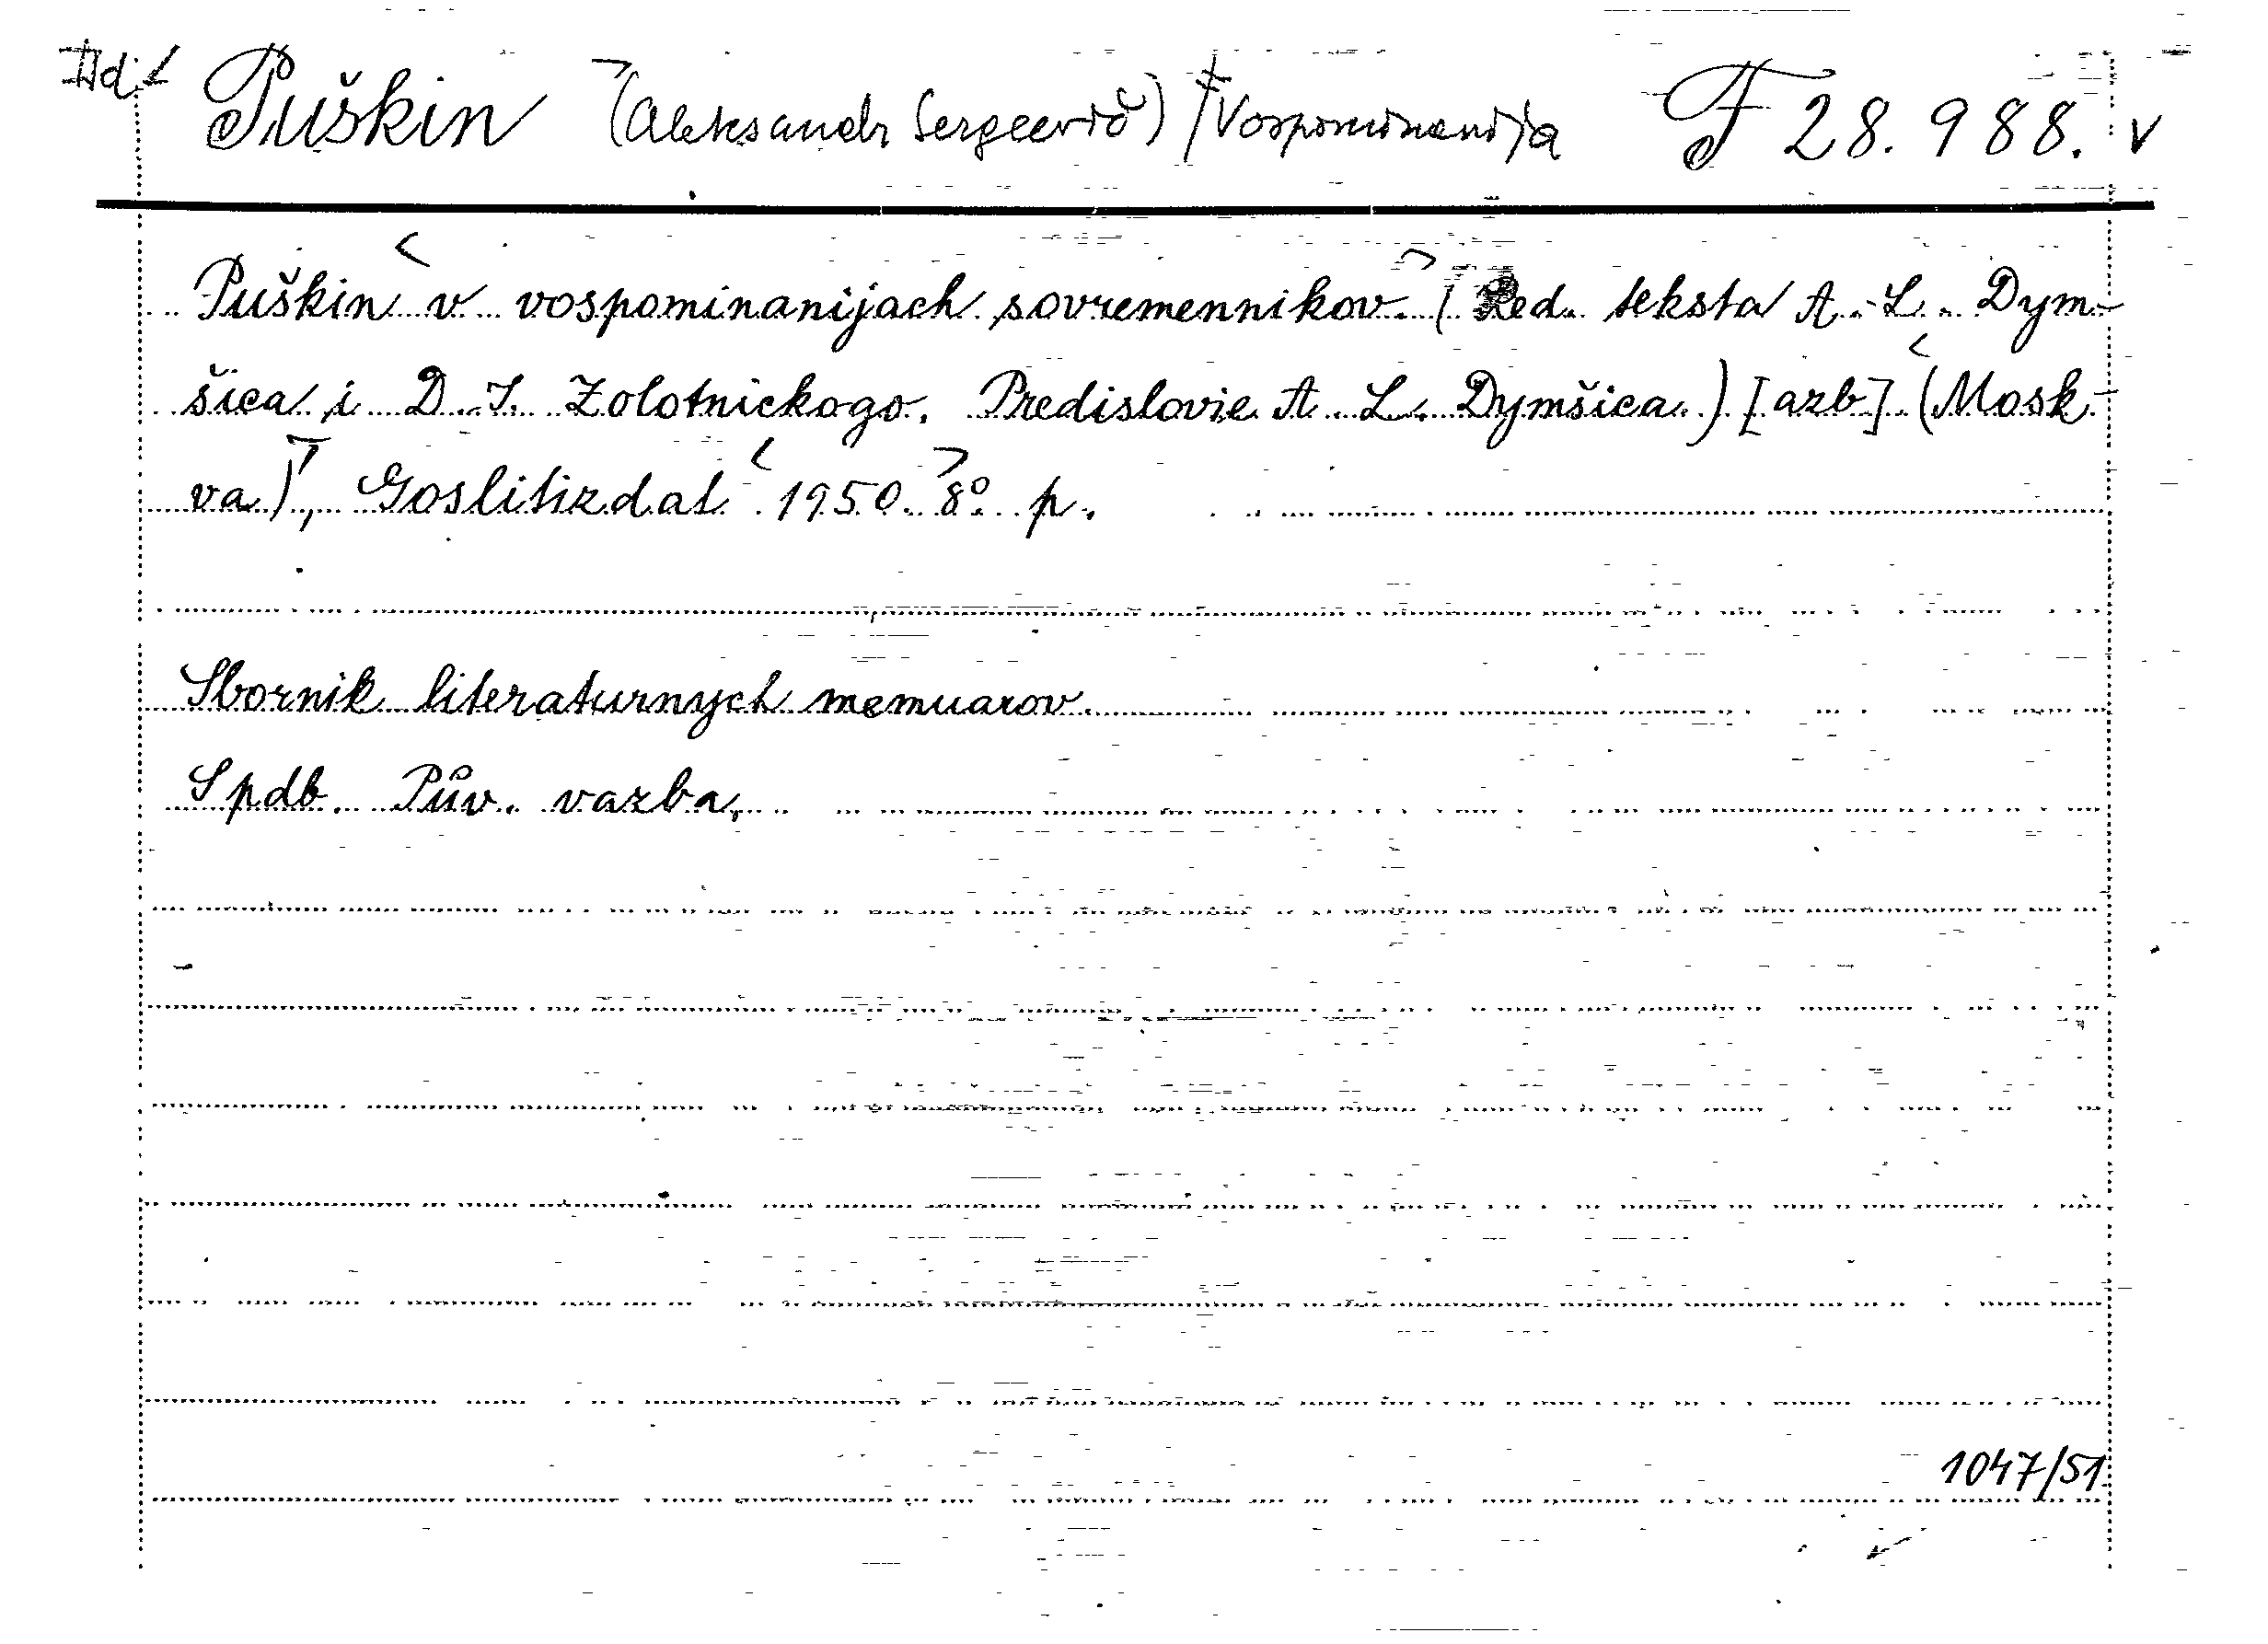 Puškin (Aleksandr Sergeevič) Vospominanija F 28.988. v
Puškin v vospominanijach sovremennikov. (Red. teksta A. L. Dym-
šica i D. I. Zolotnickogo. Predislovie A. L. Dymšica.) [azb] (Mosk-
va), Goslitizdat 1950. 8° p.
Sbornik literaturnych memuarov.
Spdb. Pův. vazba.
1047/51